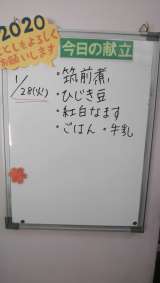 2020
ことしもよろしく
お願いします
今日の献立
1/28(火)
・筑前煮
・ひじき豆
・紅白なます
・ごはん・牛乳